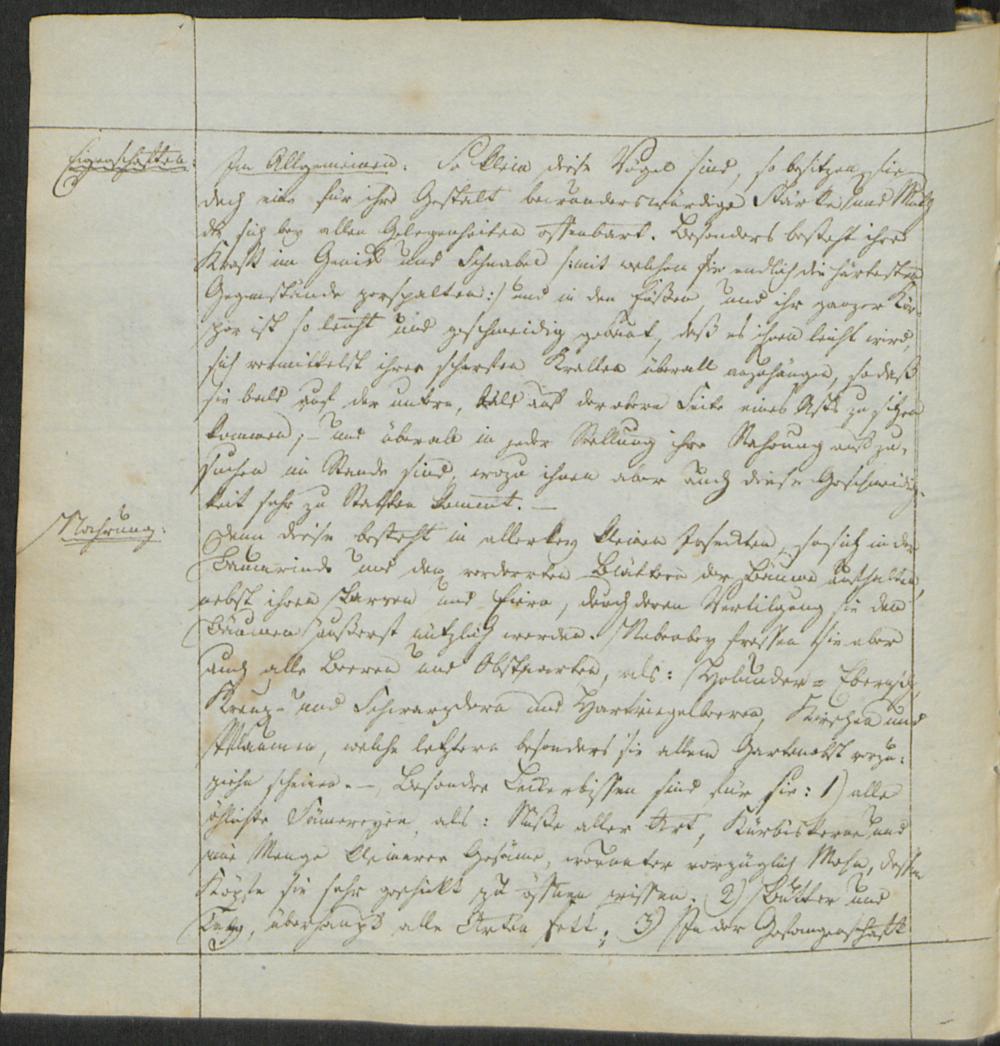 Eigenschaften.
Im Allgemeinen. So klein diese Vögel sind, so besitzen sie
doch eine für ihre Gestalt bewundernswürdige Stärke und Muth
die sich bey allen Gelegenheiten offenbart. Besonders besteht ihre
Kraft im Genick und Schnabel /:mit welchen sie endlich die härtesten
Gegenstände zerspalten:/ und in den Füßen, und ihr ganzer Kör-
per ist so leicht und geschmeidig gebaut, daß es ihnen leicht wird,
sich vermittelst ihrer scharfen Krallen überall anzuhängen, so daß
sie bald auf der untern, bald auf der obern Seite eines Asts zu sitzen
kommen; – und überall in jeder Stellung ihre Nahrung aufzu-
suchen im Stande sind, wozu ihnen aber auch diese Geschmeidig-
keit sehr zu Statten kommt. –
Nahrung.
Denn diese besteht in allerley kleinen Insekten, so sich in der
Baumrinde und den verdorrten Blättern der Bäume aufhalten,
nebst ihren Larven und Eiern, durch deren Vertilgung sie den
Bäumen äußerst nützlich werden. Nebenbey fressen sie aber
auch alle Beeren und Obstarten, als: Hollunder-
Kreuz- und Schwarzdorn und Hartriegelbeeren, Kirschen und
Pflaumen, welche letztere besonders sie allem Gartenobst vorzu-
ziehn scheinen. –, Besondre Leckerbissen sind für sie: 1) alle
öhlichte Sämereyen, als: Nüße aller Art, Kürbiskerne und
eine Menge kleinerer Gesäme, worunter vorzüglich Mohn, dessen
Köpfe sie sehr geschickt zu öffnen wissen. 2) Butter und
Talg, überhaupt alle Arten Fett; 3) In der Gefangenschaft